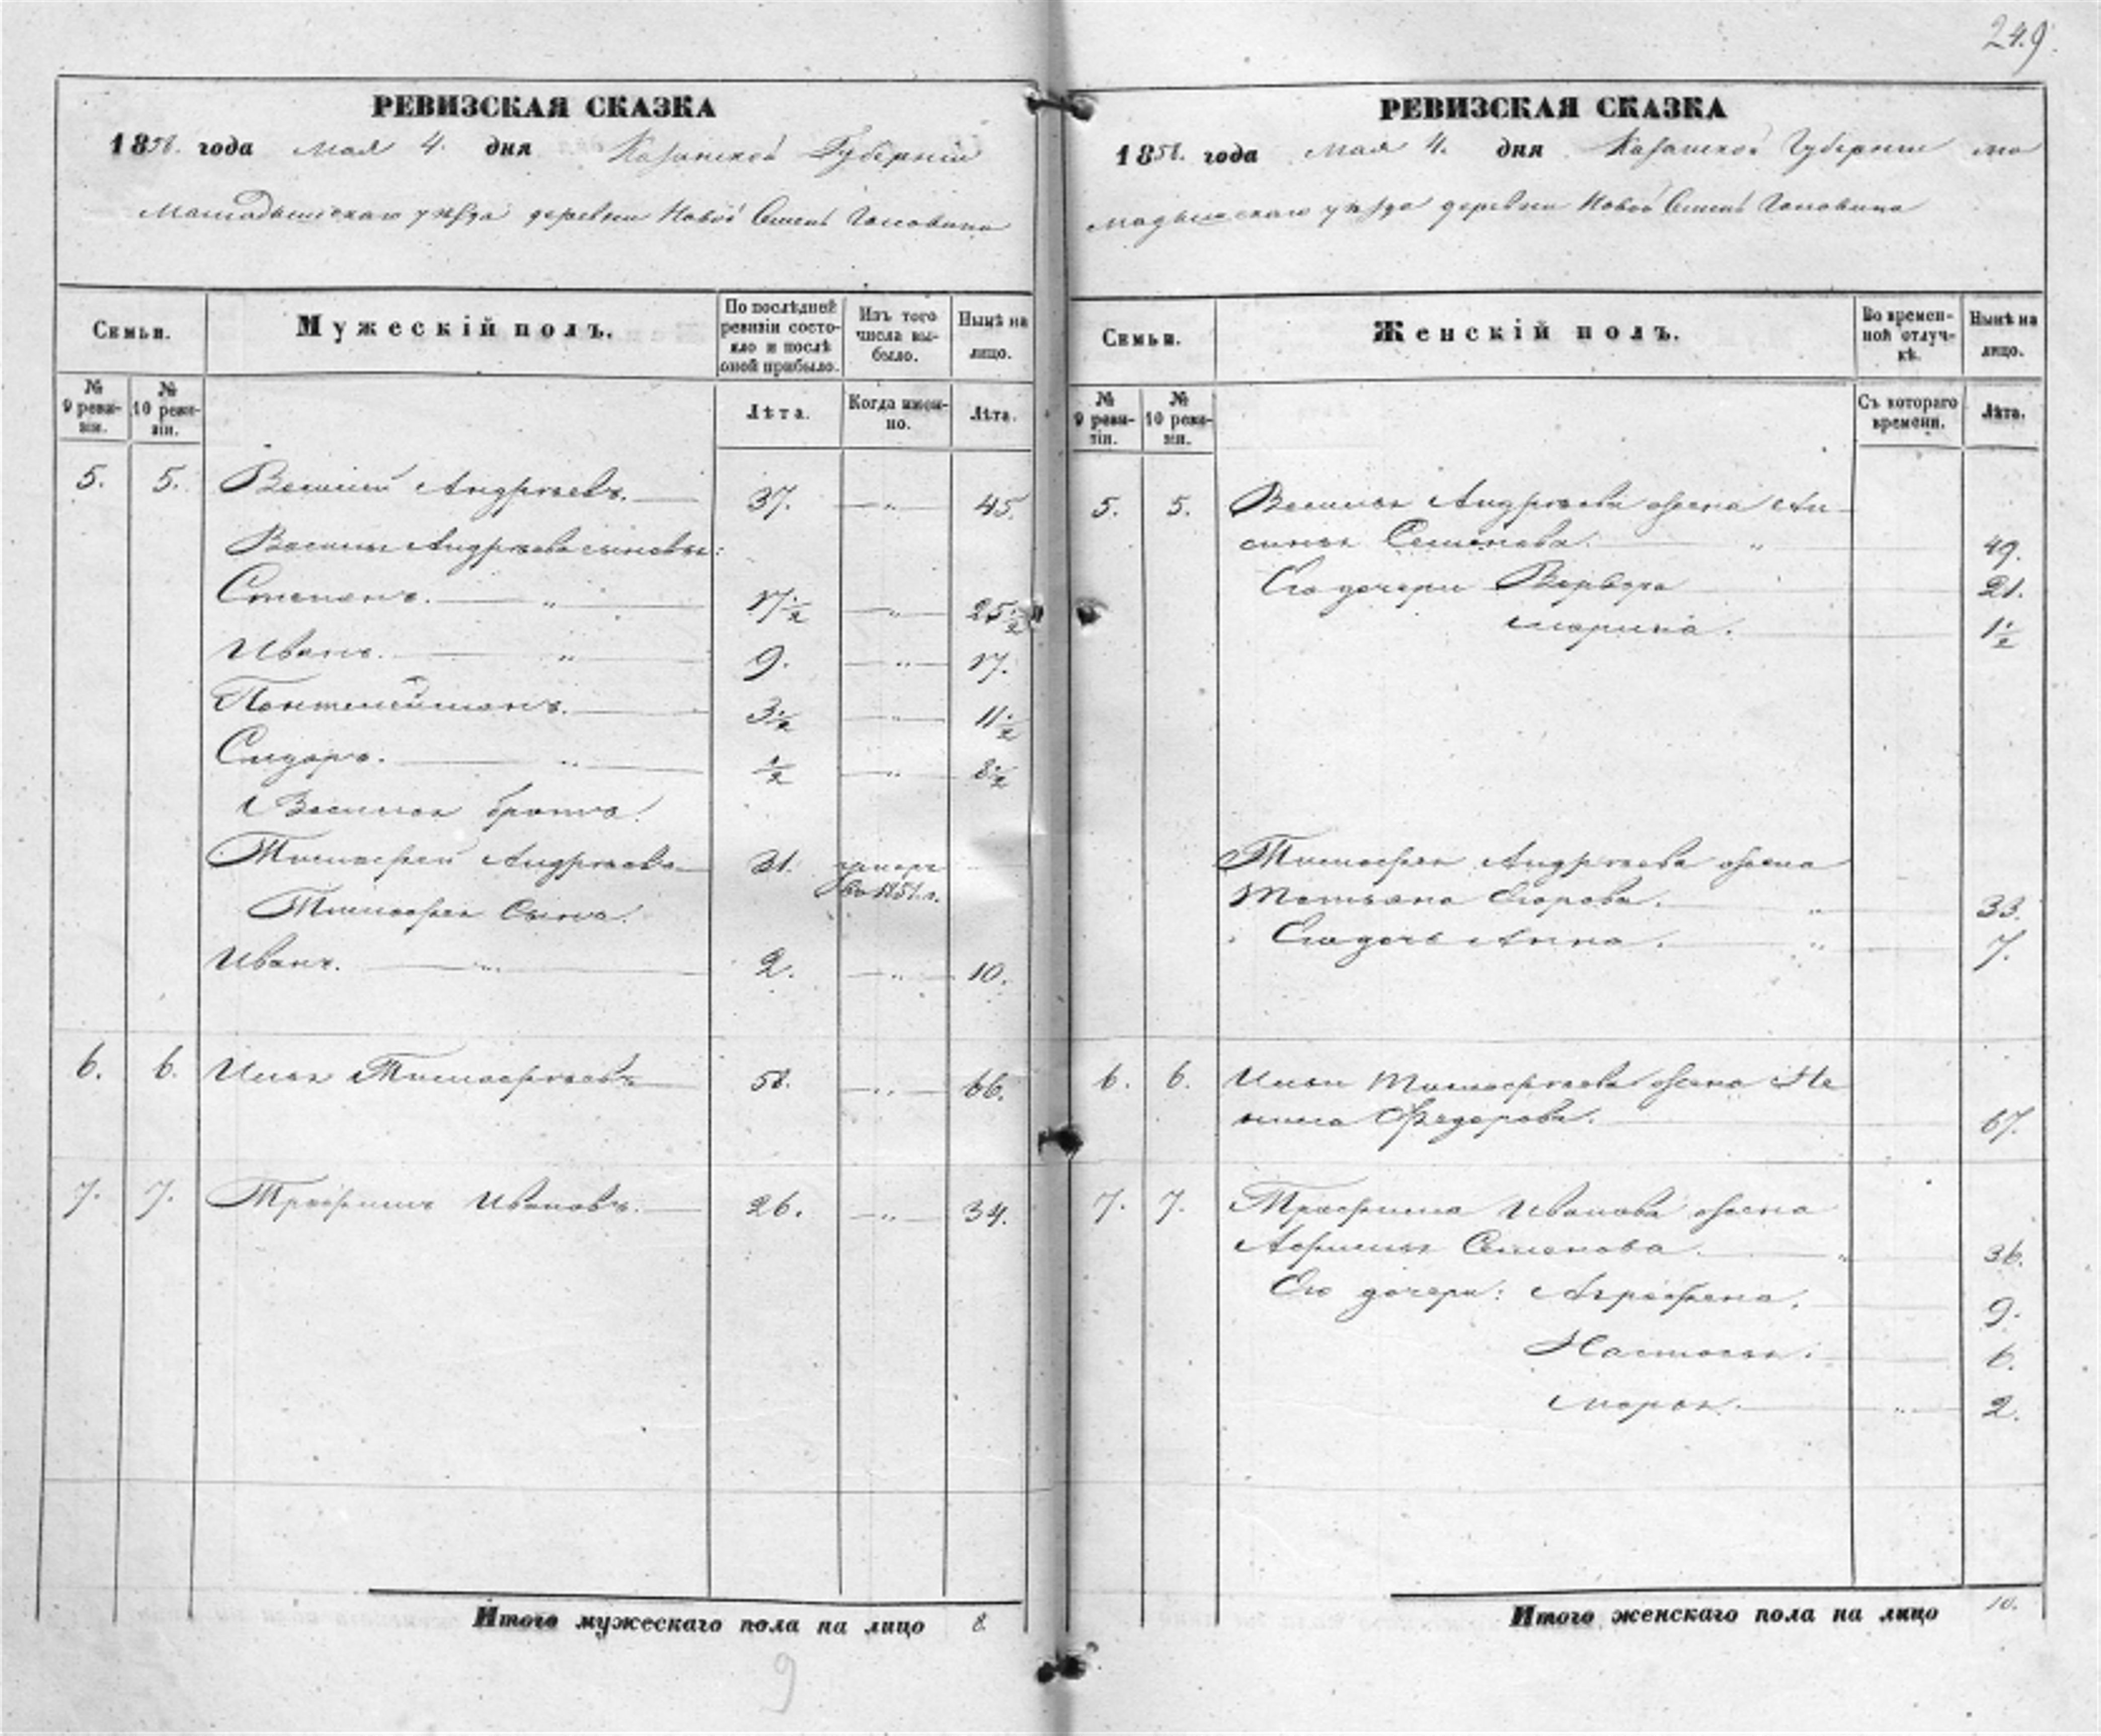 249.
РЕВИЗСКАЯ СКАЗКА
1858. года мая 4. дня Казанской Губернiи
Мамадышскаго уѣзда деревни Новой
Семьи.
Мужескiй полъ.
По послѣдней ревизiи состояло и послѣ оной прибыло.
Изъ того числа выбыло.
Нынѣ на лицо.
№ 9 ревизiи.
№ 10 ревизiи.
Лѣта.
Когда именно.
Лѣта.
5. 5. Василiй Андреевъ. 37. — „ — 45.
Василья Андреева сыновья:
Степанъ. — „ 17 1/2 — „ — 25 1/2
Иванъ. — „ 9. — „ — 17.
Пантелеймонъ. 3 1/2 — „ — 11 1/2
Сидоръ. — „ 1/2 — „ — 8 1/2
Василья братъ.
Тимофей Андреевъ 21. умеръ
въ 1851. г.
Тимофея Сынъ.
Иванъ. — „ 2. — „ — 10.
6. 6. Илья Тимофеевъ 58. — „ — 66.
7. 7. Трофимъ Ивановъ. 26. — „ — 34.
Итого мужескаго пола на лицо 8.
9
РЕВИЗСКАЯ СКАЗКА
1858. года мая 4. дня Казанской Губернiи ма
мадышскаго уѣзда деревни Новой
Семьи.
Женскiй полъ.
Во временной отлучкѣ.
Нынѣ на лицо.
№ 9 ревизiи.
№ 10 ревизiи.
Съ котораго времени.
Лѣта.
5. 5. Василья Андреева жена
Семенова. „ 49.
Его дочери Варвара 21.
Марина. 1 1/2
Тимофея Андреева жена
Татьяна Егорова. „ 33.
Его дочь Анна. „ 7.
6. 6. Ильи Тимофеева жена
Федорова. 67.
7. 7. Трофима Иванова жена
Афимья Семенова. „ 36.
Его дочери: Аграфена. 9.
Настасья. 6.
Марья. „ 2.
Итого женскаго пола на лицо 10.